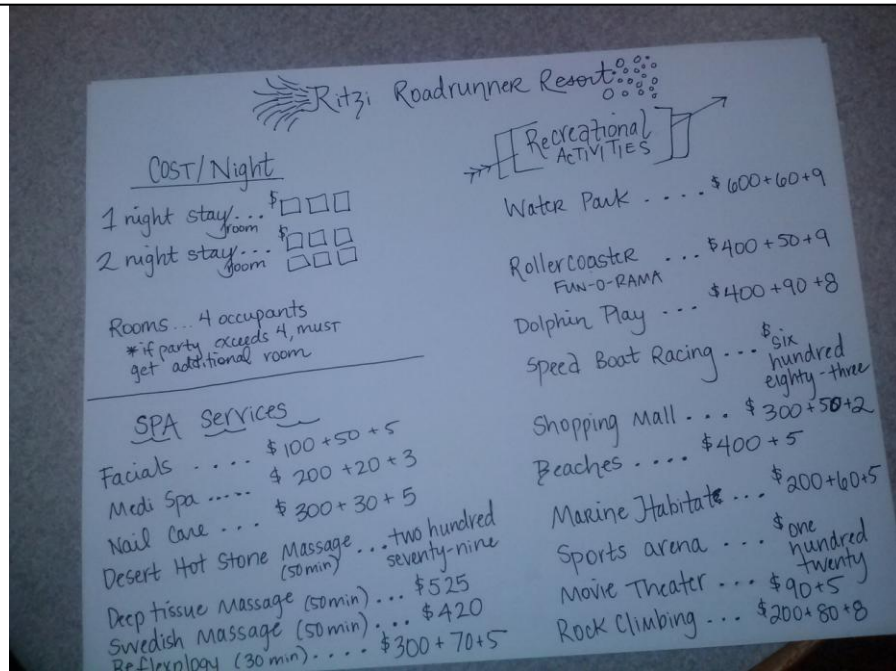 Ritzi Roadrunner Resort
COST/Night
1 night stay... $
room
2 night stay... $
room
Rooms... 4 occupants
*if party exceeds 4, must
get additional room
SPA Services
Facials .... $100+50+5
Medi Spa ..... $200+20+3
Nail Care ... $300+30+5
Desert Hot Stone Massage ...two hundred
(50min) seventy-nine
Deep tissue Massage (50min)... $525
Swedish Massage (50min)... $420
Reflexology (30 min).... $300+70+5
Recreational
ACTIVITIES
Water Park .... $600+60+9
Rollercoaster ... $400+50+9
FUN-O-RAMA
Dolphin Play ... $400+90+8
Speed Boat Racing ... $six
hundred
eighty-three
Shopping Mall ... $300+50+2
Beaches .... $400+5
Marine Habitats ... $200+60+5
Sports arena ... $one
hundred
twenty
Movie Theater ... $90+5
Rock Climbing ... $200+80+8